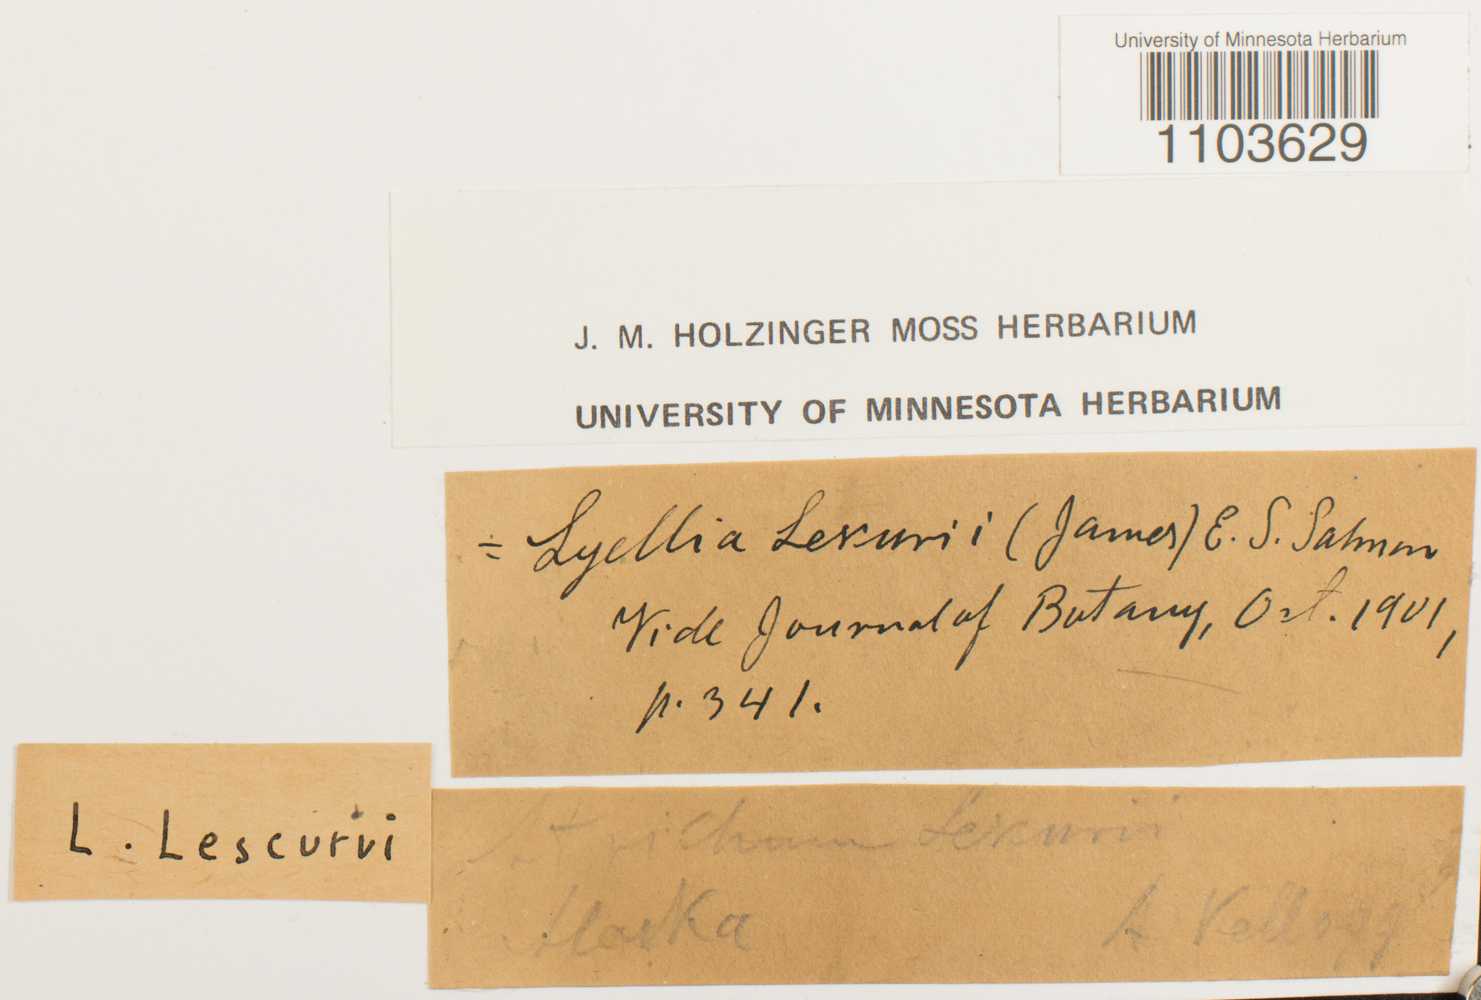 University of Minnesota Herbarium
1103629
J. M. HOLZINGER MOSS HERBARIUM
UNIVERSITY OF MINNESOTA HERBARIUM
= Lyellia Lescurii (James) E. S. Salmon
Vide Journal of Botany, Oct. 1901,
p. 341.
L. Lescurvi
Atrichum Lescurii
Alaska A Kellogg